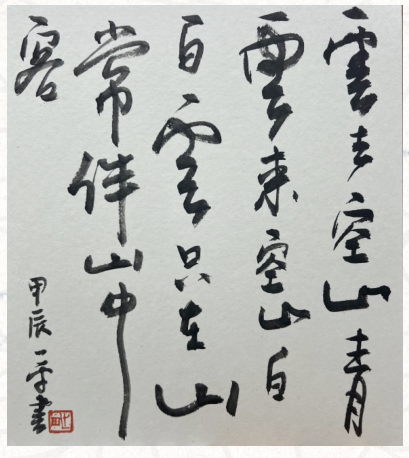 雲去空山青
雲来空山白
白雲只在山
常伴山中
客
甲辰一平書